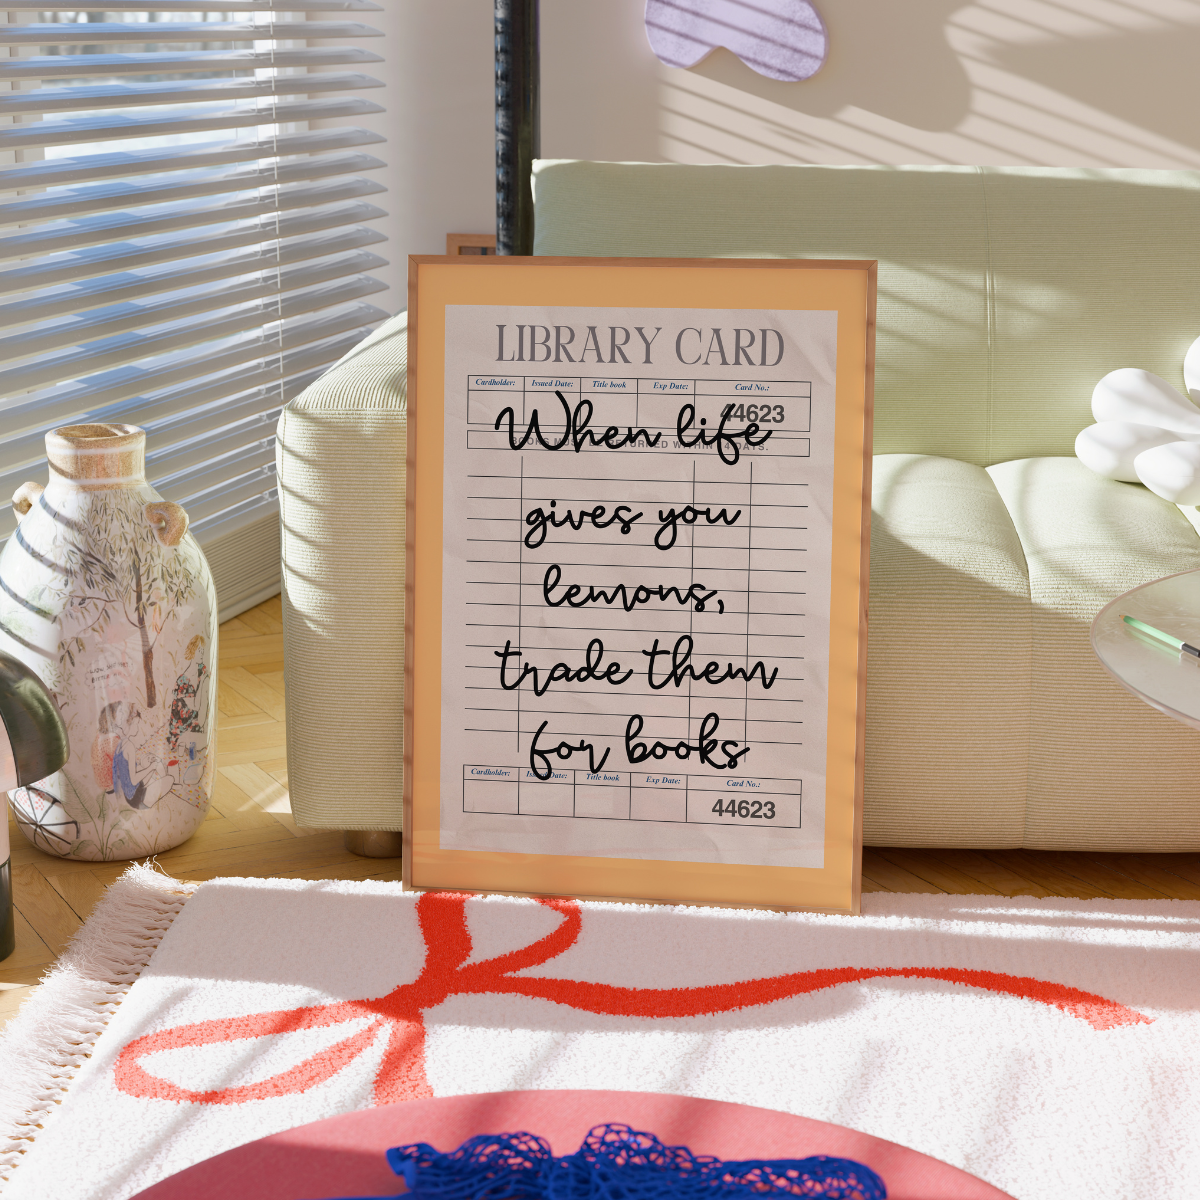 LIBRARY CARD
Cardholder: Issued Date: Title book Exp Date: Card No.:
44623
When life
BOOKS MUST BE RETURNED WITHIN DAYS.
gives you
lemons,
trade them
for books
Cardholder: Issued Date: Title book Exp Date: Card No.:
44623